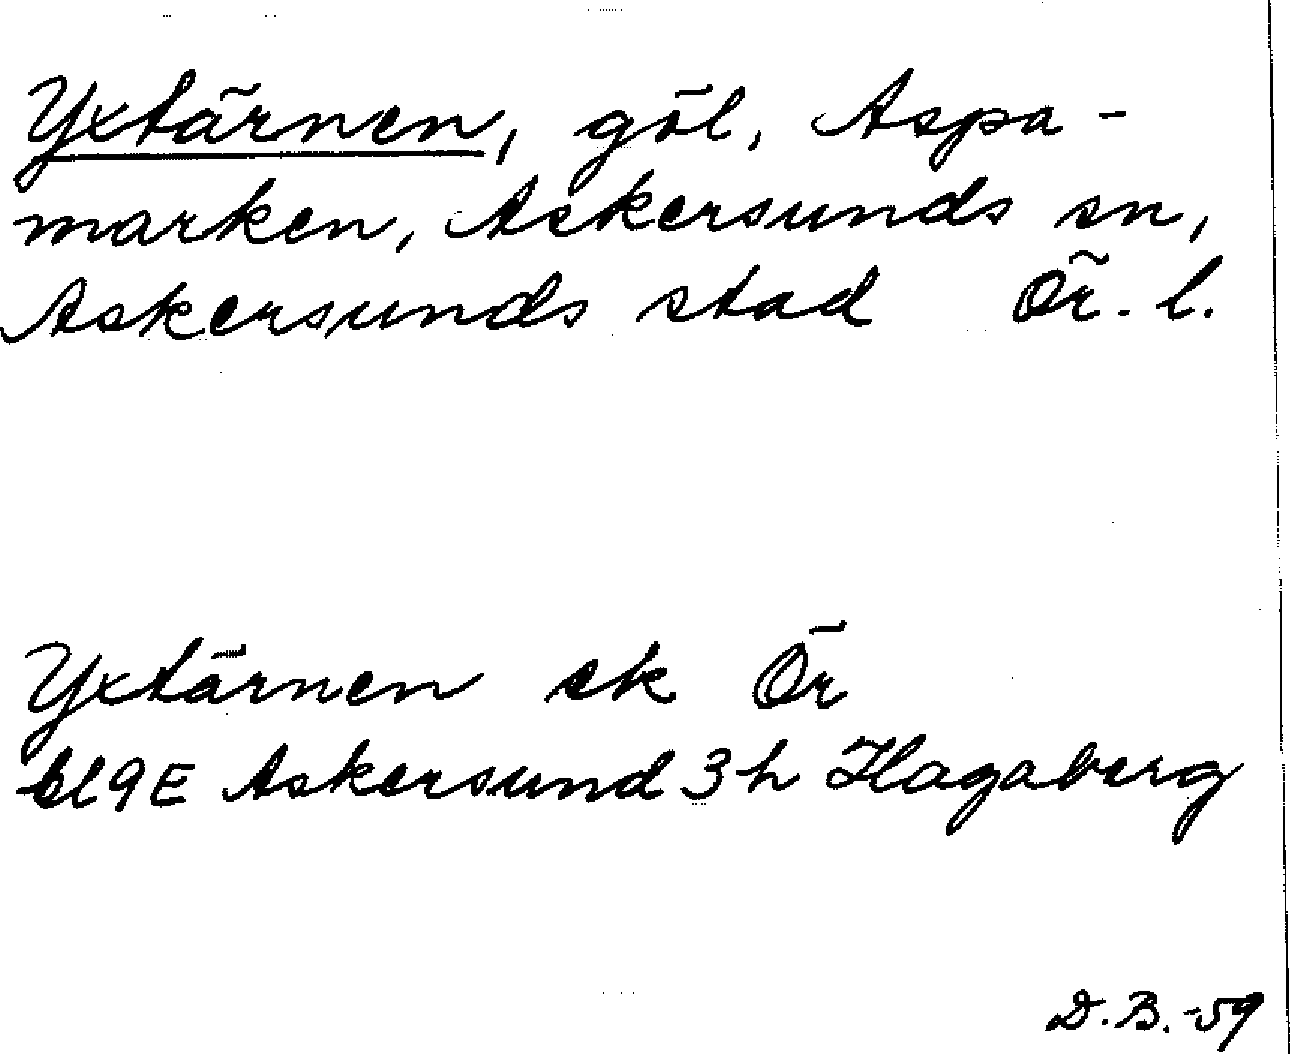 Yxtärnen, göl, Aspa-
marken, Askersunds sn,
Askersunds stad Ör. l.
Yxtärnen ek Ör
bl 9E Askersund 3h Hagaberg
D. B. -59